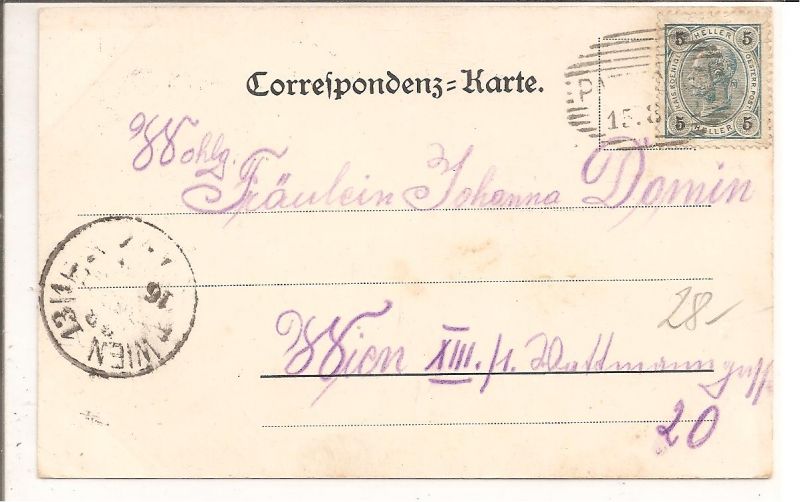 Correspondenz-Karte.
5 HELLER 5
KAIS. KOENIGL. OESTERR. POST.
5 HELLER 5
15.8
Wohlg.
Fräulein Johanna Domin
WIEN 13/1
16
28-
Wien XIII./1. Wattmanngasse
20